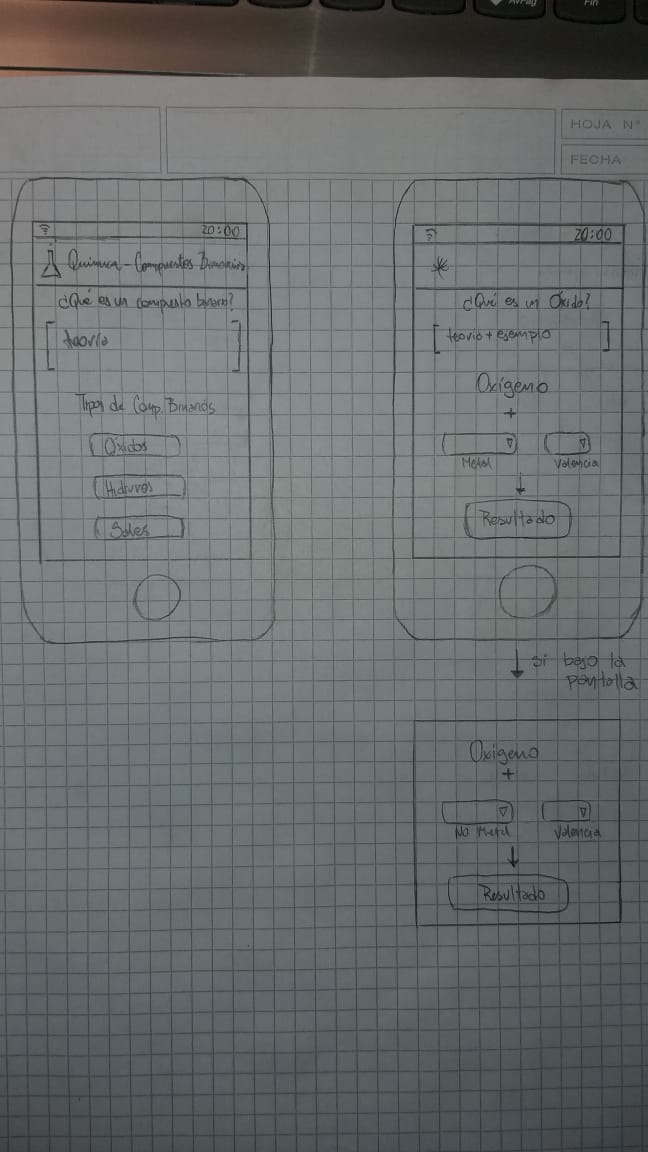 AvPág
Fin
HOJA N°
FECHA
20:00
Química - Compuestos Binarios
¿Qué es un compuesto binario?
[teoría]
Tipos de Comp. Binarios
Óxidos
Hidruros
Sales
20:00
¿Qué es un Óxido?
[teoría + ejemplo]
Oxígeno
+
Metal Valencia
Resultado
si bajo la
pantalla
Oxígeno
+
No Metal Valencia
Resultado